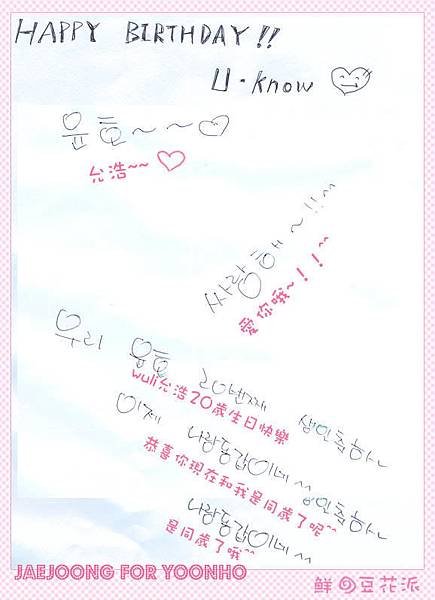 HAPPY BIRTHDAY!!
U·Know
윤호~~
允浩~~
싸랑해~!!^^
愛你哦~!!^^
우리 윤호 20번째 생일축하~
wuli允浩20歲生日快樂
이제 나랑동갑이네^^ 생일축하~
恭喜你現在和我是同歲了呢^^
나랑동갑이네^^
是同歲了哦^^
JAEJOONG FOR YOONHO
鮮の豆花派